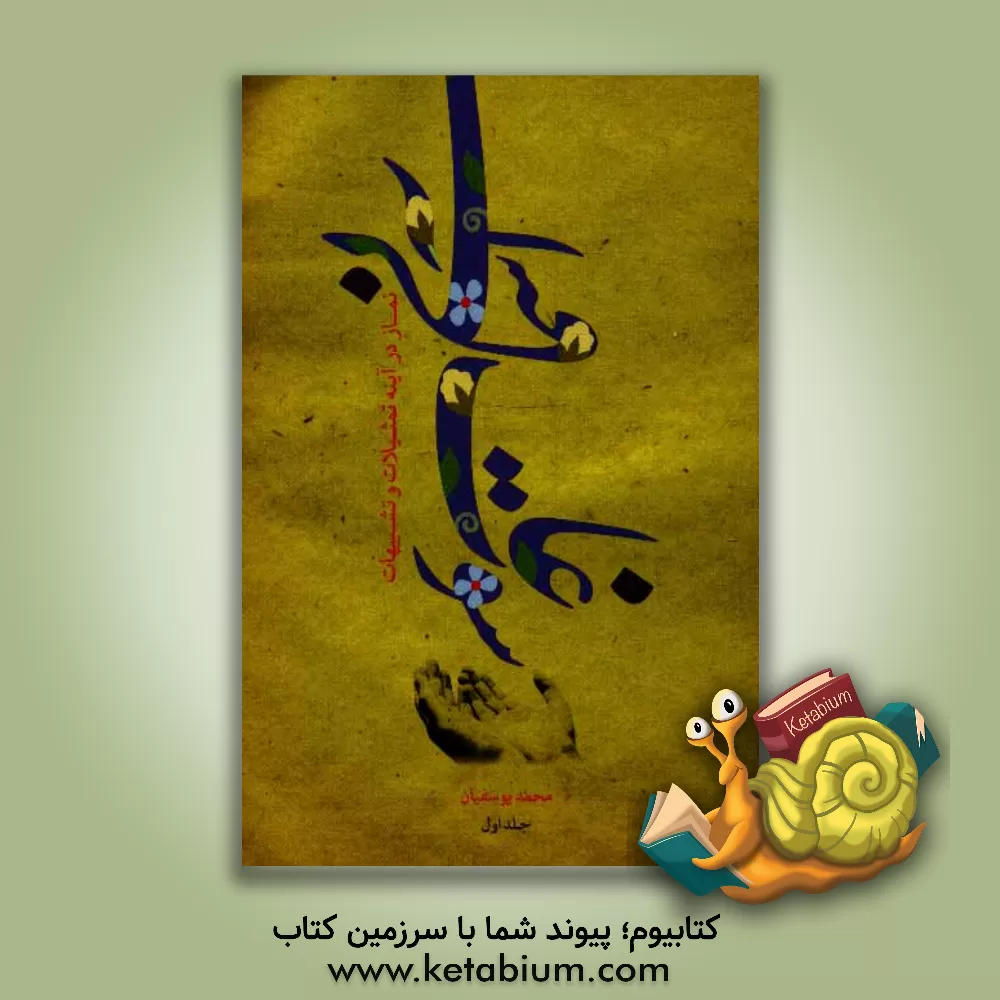 نماز در آینه تمثیلات و تشبیهات
محمد یوسفیان
جلد اول
Ketabium
کتابیوم؛ پیوند شما با سرزمین کتاب
www.ketabium.com